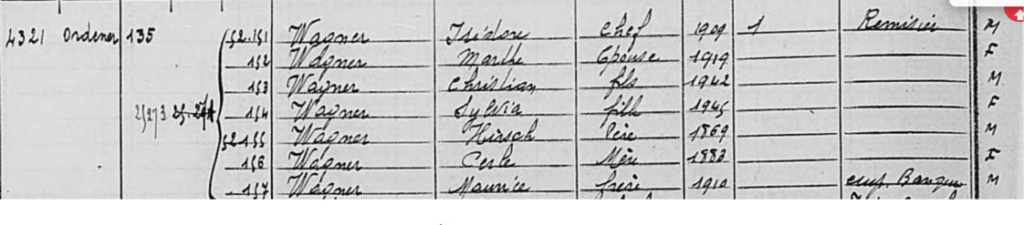 4321 Ordener 135 52.151 Wagner Isidore Chef 1909 1 Remisier M
152 Wagner Marthe Epouse 1919 F
153 Wagner Christian fils 1942 M
25273 154 Wagner Sylvia fille 1945 F
52155 Wagner Hirsch Père 1869 M
156 Wagner Cerle Mère 1883 F
157 Wagner Maurice frère 1910 emp. Banque M